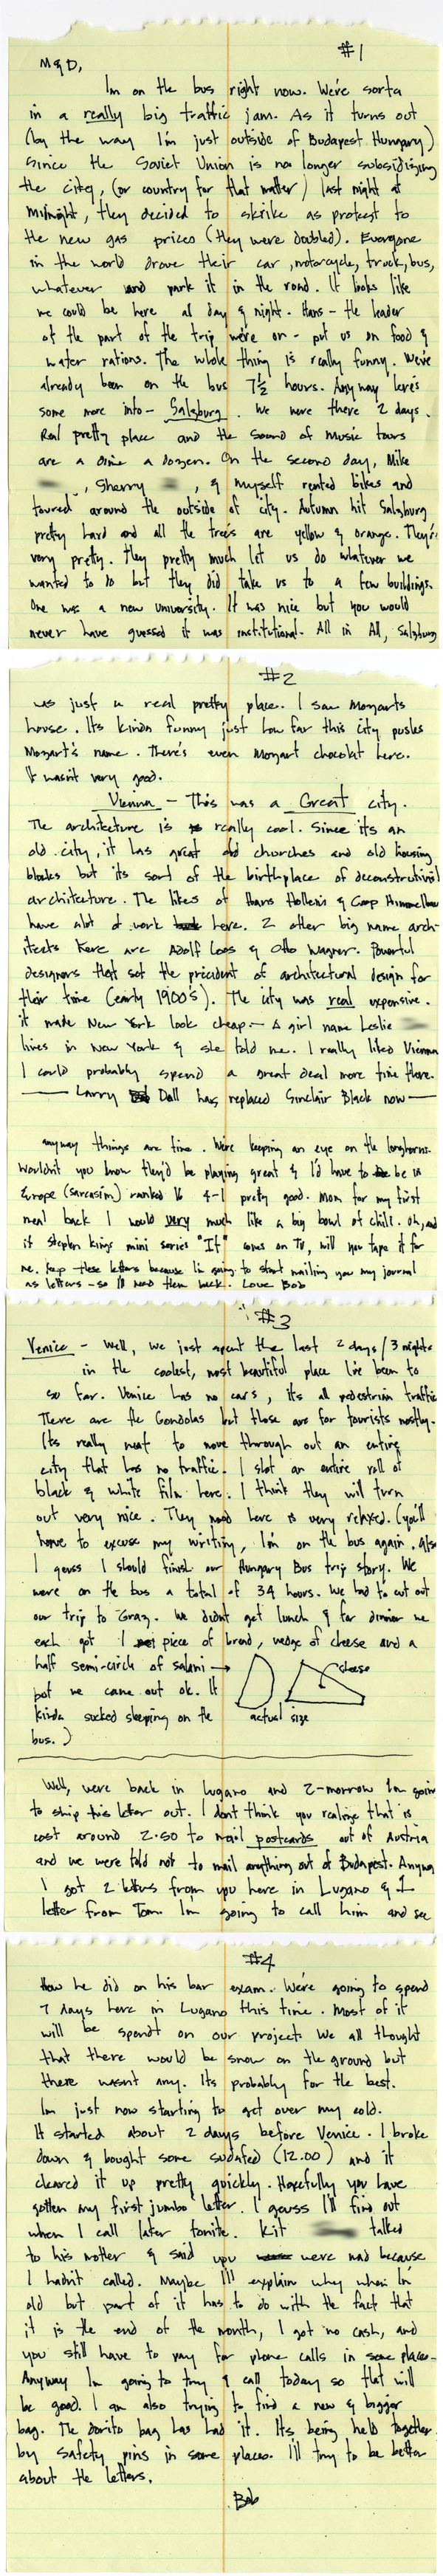 #1
M & D,
Im on the bus right now. We're sorta
in a really big traffic jam. As it turns out
(by the way I'm just outside of Budapest. Hungary)
since the Soviet Union is no longer subsidizing
the city, (or country for that matter) last night at
midnight, they decided to skrike as protest to
the new gas prices (they were doubled). Everyone
in the world drove their car, motorcycle, truck, bus,
whatever and park it in the road. It looks like
we could be here al day & night. Hans - the leader
of the part of the trip we're on - put us on food &
water rations. The whole thing is really funny. We've
already been on the bus 7½ hours. Anyway here's
some more info - Salzburg. We were there 2 days.
Real pretty place and the sound of music tours
are a dime a dozen. On the second day, Mike
, Sherry , & myself rented bikes and
toured around the outside of city. Autumn hit Salzburg
pretty hard and all the trees are yellow & orange. They're
very pretty. They pretty much let us do whatever we
wanted to do but they did take us to a few buildings.
One was a new university. It was nice but you would
never have guessed it was institutional. All in All, Salzburg
#2
was just a real pretty place. I saw Mozarts
house. Its kinda funny just how far this city pushes
Mozart's name. There's even Mozart chocolat here.
It wasn't very good.
Vienna - This was a Great city.
The architecture is really cool. Since its an
old city, it has great old churches and old housing
blocks but its sort of the birthplace of deconstrutivist
architecture. The likes of Hans Hollein's & Coop Himmelblau
have alot of work here. 2 other big name arch-
itects here are Adolf Loos & Otto Wagner. Powerful
designers that set the president of architectural design for
their time (early 1900's). The city was real expensive.
it made New York look cheap - A girl name Leslie
lives in New York & she told me. I really liked Vienna
I could probably spend a great deal more time there.
Larry Doll has replaced Sinclair Black now
anyway things are fine. We're keeping an eye on the longhorns.
Wouldn't you know they'd be playing great & I'd have to be in
Europe (sarcasim) ranked 16 4-1 pretty good. Mom for my first
meal back I would very much like a big bowl of chili. Oh, and
if stephen kings mini series "It" comes on TV, will you tape it for
me. Keep these letters because I'm going to start mailing you my journal
as letters - so I'll need them back. Love Bob
#3
Venice - Well, we just spent the last 2 days/3 nights
in the coolest, most beautiful place I've been to
so far. Venice has no cars, its all pedestrian traffic
There are the Gondolas but those are for tourists mostly.
Its really neat to move through out an entire
city that has no traffic. I shot an entire roll of
black & white film here. I think they will turn
out very nice. They mood here is very relaxed. (you'll
have to excuse my writing, I'm on the bus again. Also
I geuss I should finish our Hungary Bus trip story. We
were on the bus a total of 34 hours. We had to cut out
our trip to Graz. We didnt get lunch & for dinner we
each got 1 piece of bread, wedge of cheese and a
half semi-circle of salami → cheese
but we came out ok. It
kinda sucked sleeping on the actual size
bus.)
Well, were back in Lugano and 2-morrow Im goin
to ship this letter out. I dont think you realize that is
cost around 2.50 to mail postcards out of Austria
and we were told not to mail anything out of Budapest. Anyway
I got 2 letters from you here in Lugano & 1
letter from Tom. Im going to call him and see
#4
How he did on his bar exam. We're going to spend
7 days here in Lugano this time. Most of it
will be spendt on our project. We all thought
that there would be snow on the ground but
there wasnt any. Its probably for the best.
Im just now starting to get over my cold.
It started about 2 days before Venice. I broke
down & bought some sudafed (12.00) and it
cleared it up pretty quickly. Hopefully you have
gotten my first jumbo letter. I geuss I'll find out
when I call later tonite. Kit talked
to his mother & said you were mad because
I hadn't called. Maybe I'll explain why when I'm
old but part of it has to do with the fact that
it is the end of the month, I got no cash, and
you still have to pay for phone calls in some places -
Anyway Im going to try & call today so that will
be good. I am also trying to find a new & bigger
bag. The dorito bag has had it. Its being held together
by safety pins in some places. I'll try to be better
about the letters.
Bob